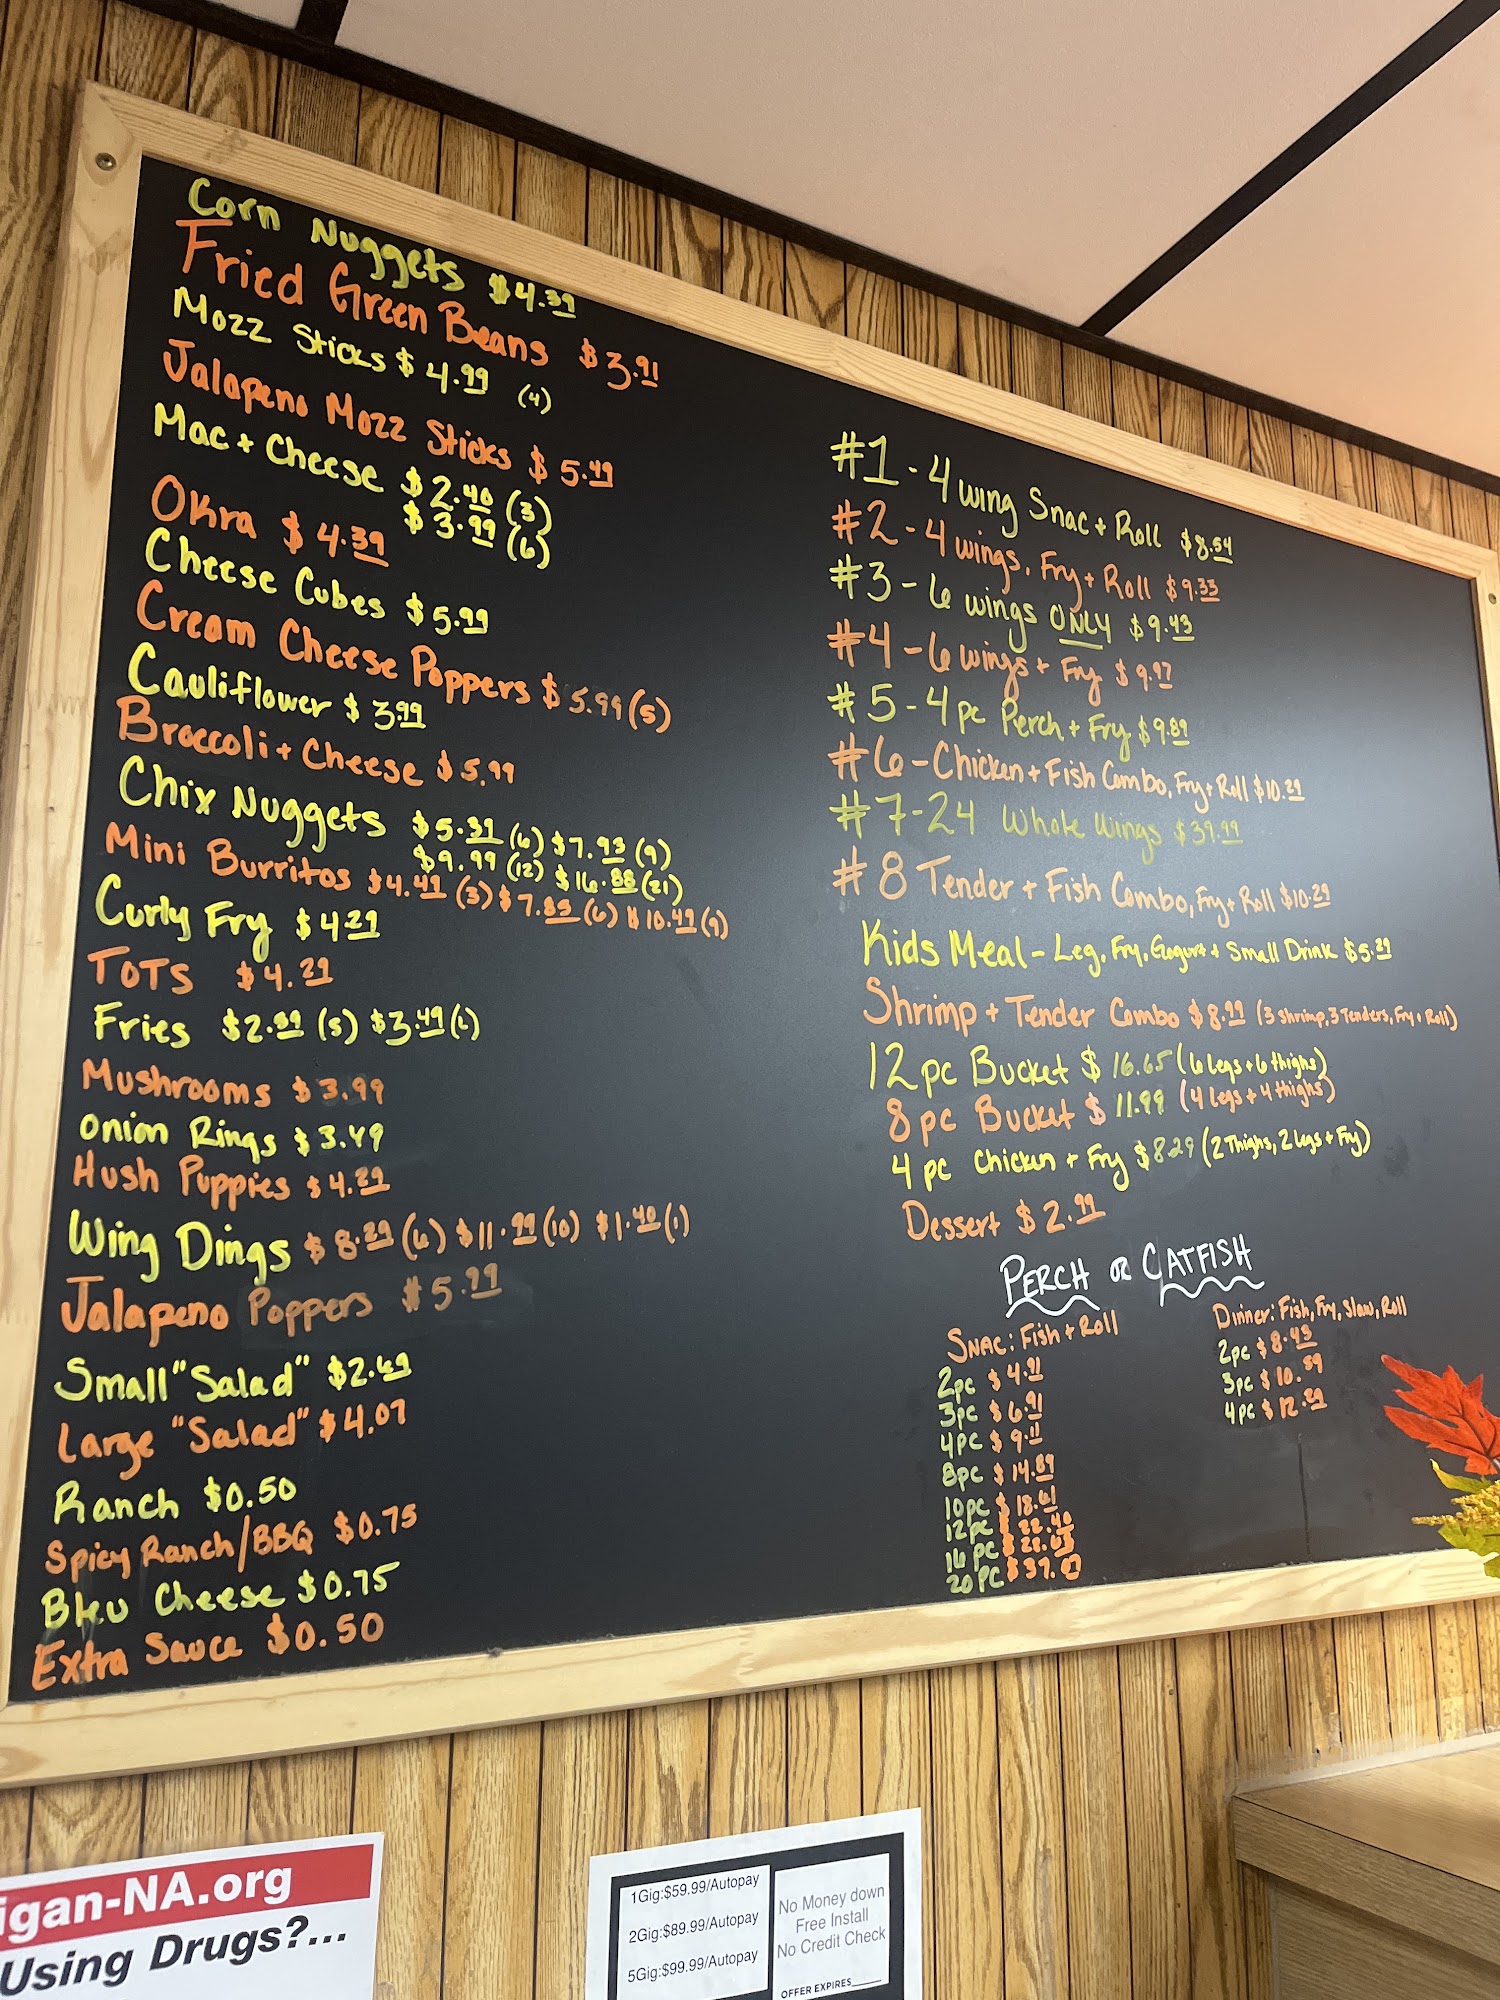 Corn Nuggets $4.39
Fried Green Beans $3.91
Mozz Sticks $4.99 (4)
Jalapeno Mozz Sticks $5.49
Mac + Cheese $2.40 (3)
$3.99 (6)
Okra $4.39
Cheese Cubes $5.99
Cream Cheese Poppers $5.99 (5)
Cauliflower $3.99
Broccoli + Cheese $5.99
Chix Nuggets $5.39 (6) $7.93 (9)
$9.99 (12) $16.88 (21)
Mini Burritos $4.49 (3) $7.89 (6) $10.49 (9)
Curly Fry $4.29
TOTS $4.29
Fries $2.89 (S) $3.49 (L)
Mushrooms $3.99
Onion Rings $3.49
Hush Puppies $4.29
Wing Dings $8.29 (6) $11.99 (10) $1.40 (1)
Jalapeno Poppers $5.99
Small "Salad" $2.69
Large "Salad" $4.07
Ranch $0.50
Spicy Ranch/BBQ $0.75
Bleu Cheese $0.75
Extra Sauce $0.50
#1 - 4 wing Snac + Roll $8.54
#2 - 4 wings, Fry + Roll $9.33
#3 - 6 wings ONLY $9.43
#4 - 6 wings + Fry $9.97
#5 - 4 pc Perch + Fry $9.89
#6 - Chicken + Fish Combo, Fry + Roll $10.29
#7 - 24 Whole Wings $39.99
#8 Tender + Fish Combo, Fry + Roll $10.29
Kids Meal - Leg, Fry, Gogurt + Small Drink $5.39
Shrimp + Tender Combo $8.99 (3 Shrimp, 3 Tenders, Fry + Roll)
12 pc Bucket $16.65 (6 legs + 6 thighs)
8 pc Bucket $11.99 (4 legs + 4 thighs)
4 pc Chicken + Fry $8.29 (2 Thighs, 2 Legs + Fry)
Dessert $2.99
PERCH OR CATFISH
SNAC: Fish + Roll
2pc $4.91
3pc $6.91
4pc $9.11
8pc $14.89
10pc $18.61
12pc $22.40
16 pc
20 PC $37.
Dinner: Fish, Fry, Slaw, Roll
2pc $8.43
3pc $10.59
4pc $12.39
igan-NA.org
Using Drugs?...
1Gig:$59.99/Autopay
2Gig:$89.99/Autopay
5Gig:$99.99/Autopay
No Money down
Free Install
No Credit Check
OFFER EXPIRES